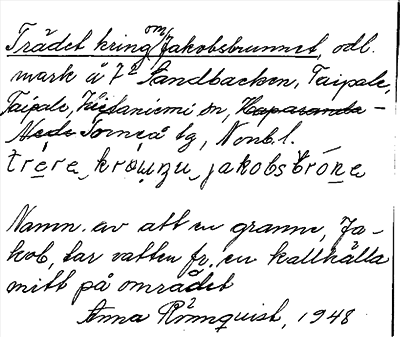 Trädet kring om Jakobsbrunnet, odl.
mark å 7² Sandbacken, Taipale,
Taipale, Vitsaniemi sn, Haparanda -
Nedr Torneå tg, Nonb.l.
trére krówŋu jakobsbróne
Namn. av att en granne, Ja-
kob, tar vatten fr. en kallkälla
mitt på området
Anna Rönnquist, 1948